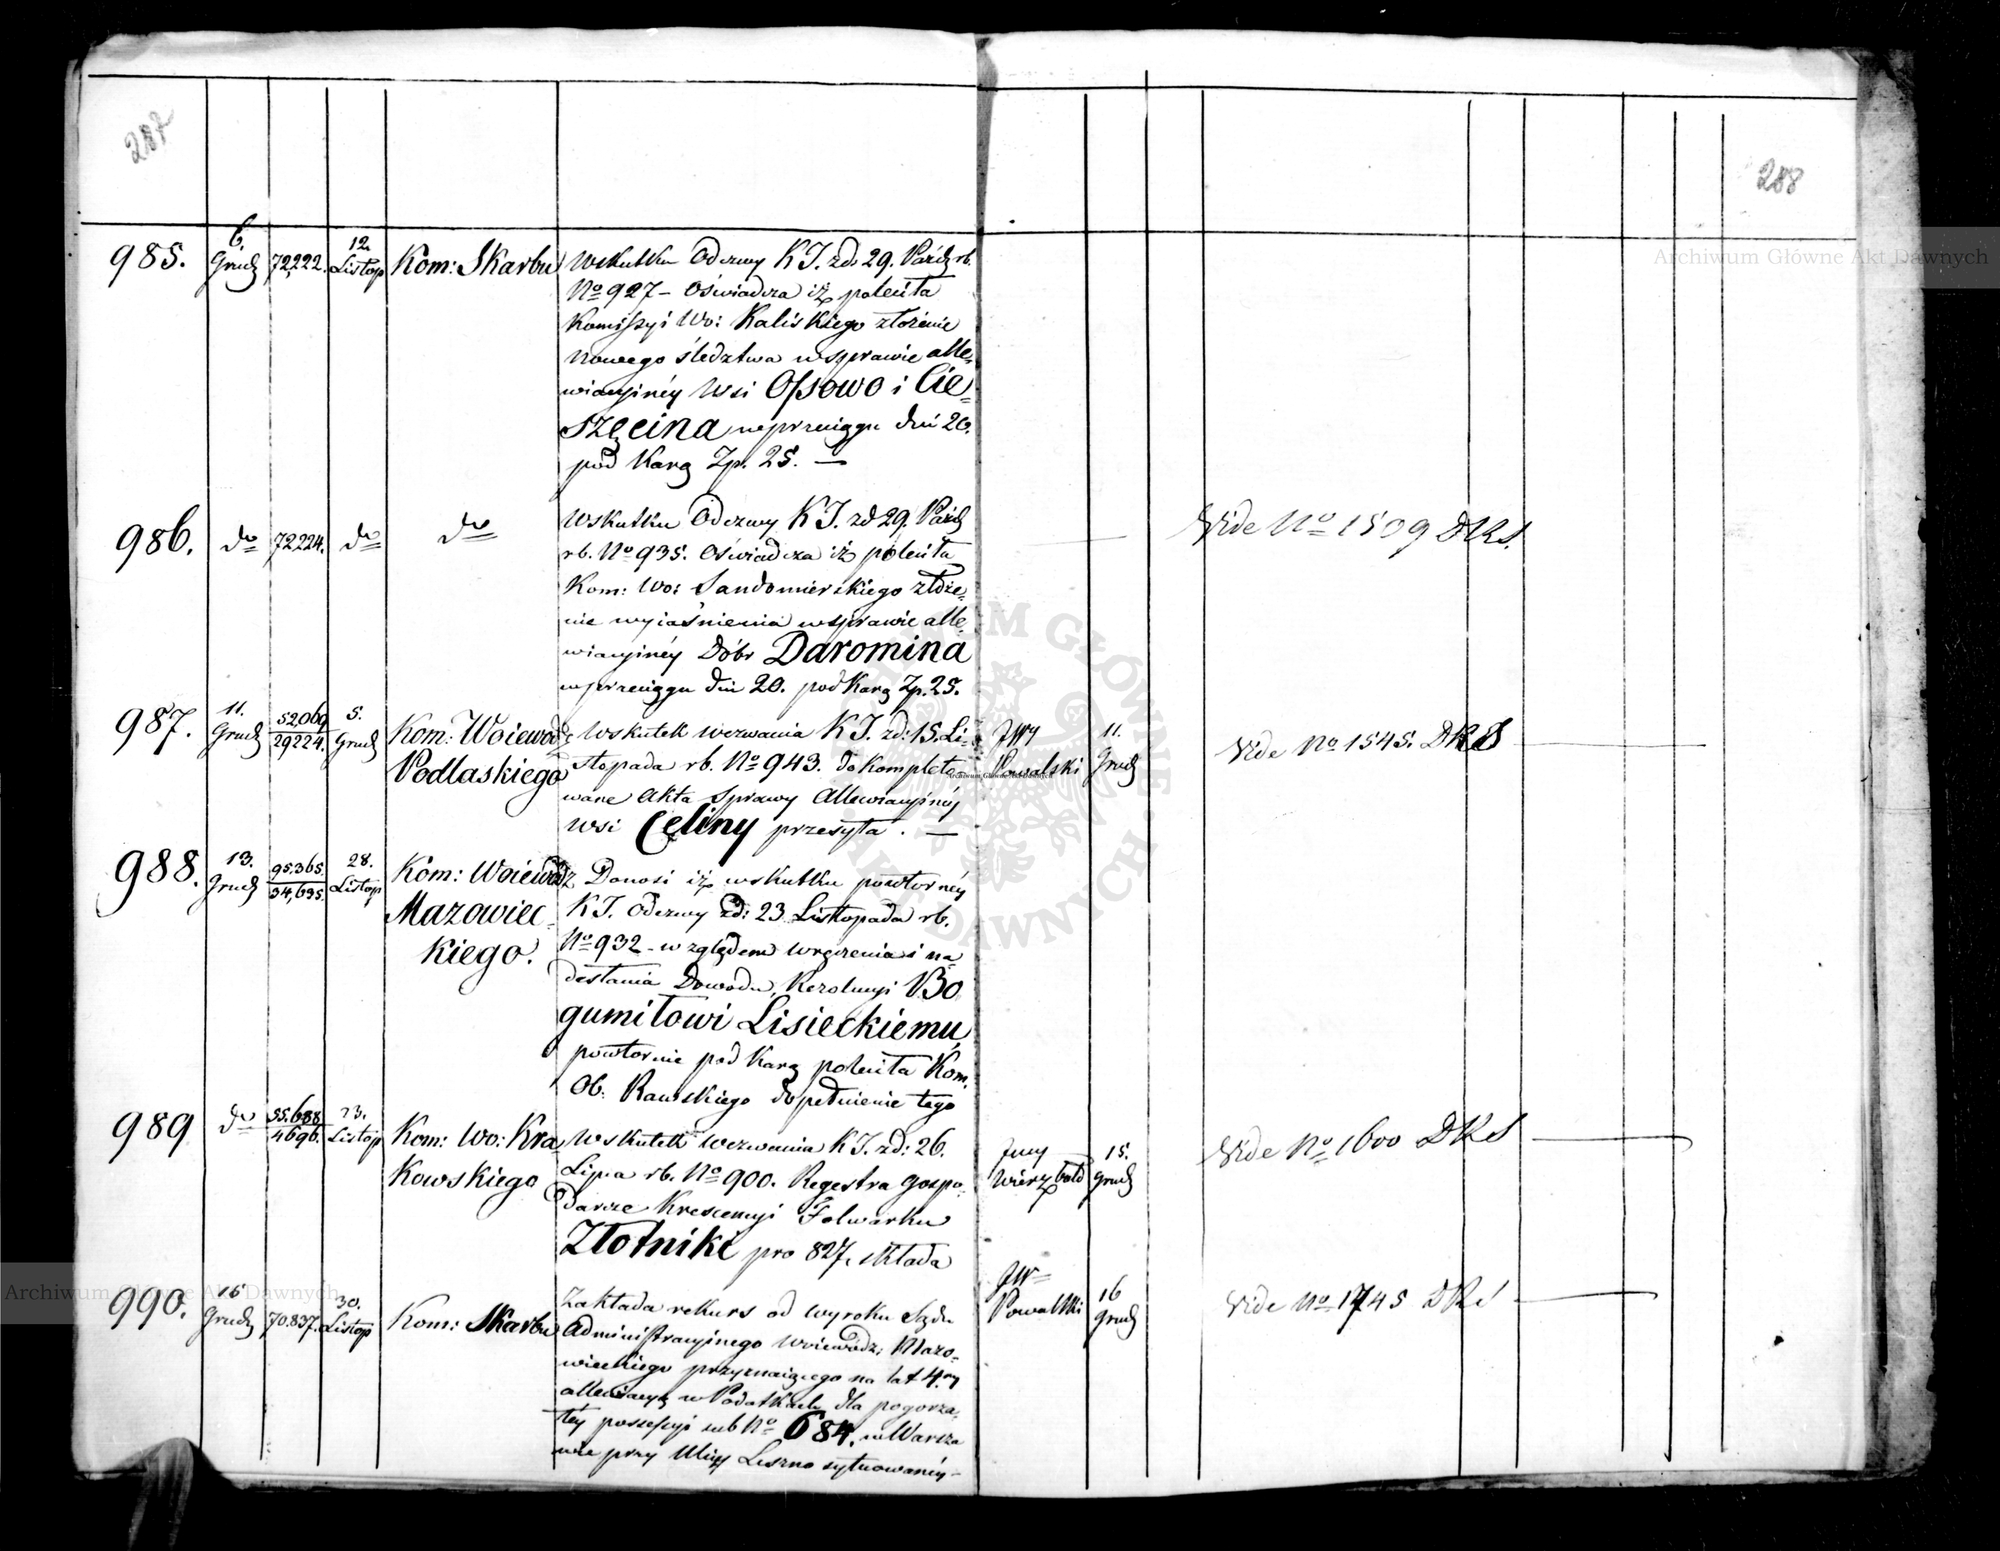 287
288
985.
6.
Grudz
72,222.
12
Listop
Kom: Skarbu
Wskutku Odezwy K J. zd. 29. Paźdz rb.
No 927 – Oświadcza iż poleciła
Kommissyi Wo: Kaliskiego złożenie
nowego śledztwa w sprawie alle-
wiacyjnéy Wsi Ossowo i Cie-
szęcina w przeciągu dni 20.
pod Karą Zp. 25. —
986.
do
72,224.
do
do
Wskutku Odezwy K J. zd 29. Paźdz
rb. No 935. Oświadcza iż poleciła
Kom: Wo: Sandomierskiego złoże-
nie wyiaśnienia w sprawie alle-
wiacyjnéy Dóbr Daromina
w przeciągu dni 20. pod Karą Zp. 25.
Vide No 1509 DKS.
987.
11.
Grudz
52,069
29224.
5.
Grudz
Kom: Woiewodz
Podlaskiego
Wskutek wezwania K J. zd: 15. Li-
stopada rb. No 943. do kompleto-
wane Akta Sprawy Allewiacyjnéy
wsi Celiny przesyła. —
JWy
Powalski
11.
Grudz
Vide No 1545. DKS
988.
13.
Grudz
95.365.
34,635.
28.
Listop
Kom: Woiewodz
Mazowiec-
kiego.
Donosi iż wskutku powtornéy
K J. Odezwy zd: 23 Listopada rb.
No 932 – względem wręczenia i na-
desłania Dowodu, Rezolucyi Bo
gumiłowi Lisieckiemu,
powtornie pod Karą poleciła Kom.
Ob: Rawskiego dopełnienie tego
989
do
55.688
4696.
23.
Listop
Kom: Wo: Kra
Kowskiego
Wskutek wezwania K J. zd: 26.
Lipca rb. No 900. Regestra gospo-
darcze Krescencyi Folwarku
Złotniki pro 827. składa
Wierzbołd
15.
Grudz
Vide No 1600 DKS
990.
16
Grudz
70.837.
30.
Listop
Kom: Skarbu
Zakłada rekurs od wyroku Sądu
Administracyjnego Woiewódz: Mazo-
wieckiego przyznaiącego na lat 4.ry
allewiacyą w Podatkach dla pogorza-
łéy possessyi sub No 684. w Warsza
wie przy Ulicy Leszno sytuowanéy –
JW
Powalski
16
Grudz
Vide No 1745 DKS
Archiwum Główne Akt Dawnych
Archiwum Główne Akt Dawnych
Archiwum Główne Akt Dawnych
ARCHIWUM GŁÓWNE AKT DAWNYCH